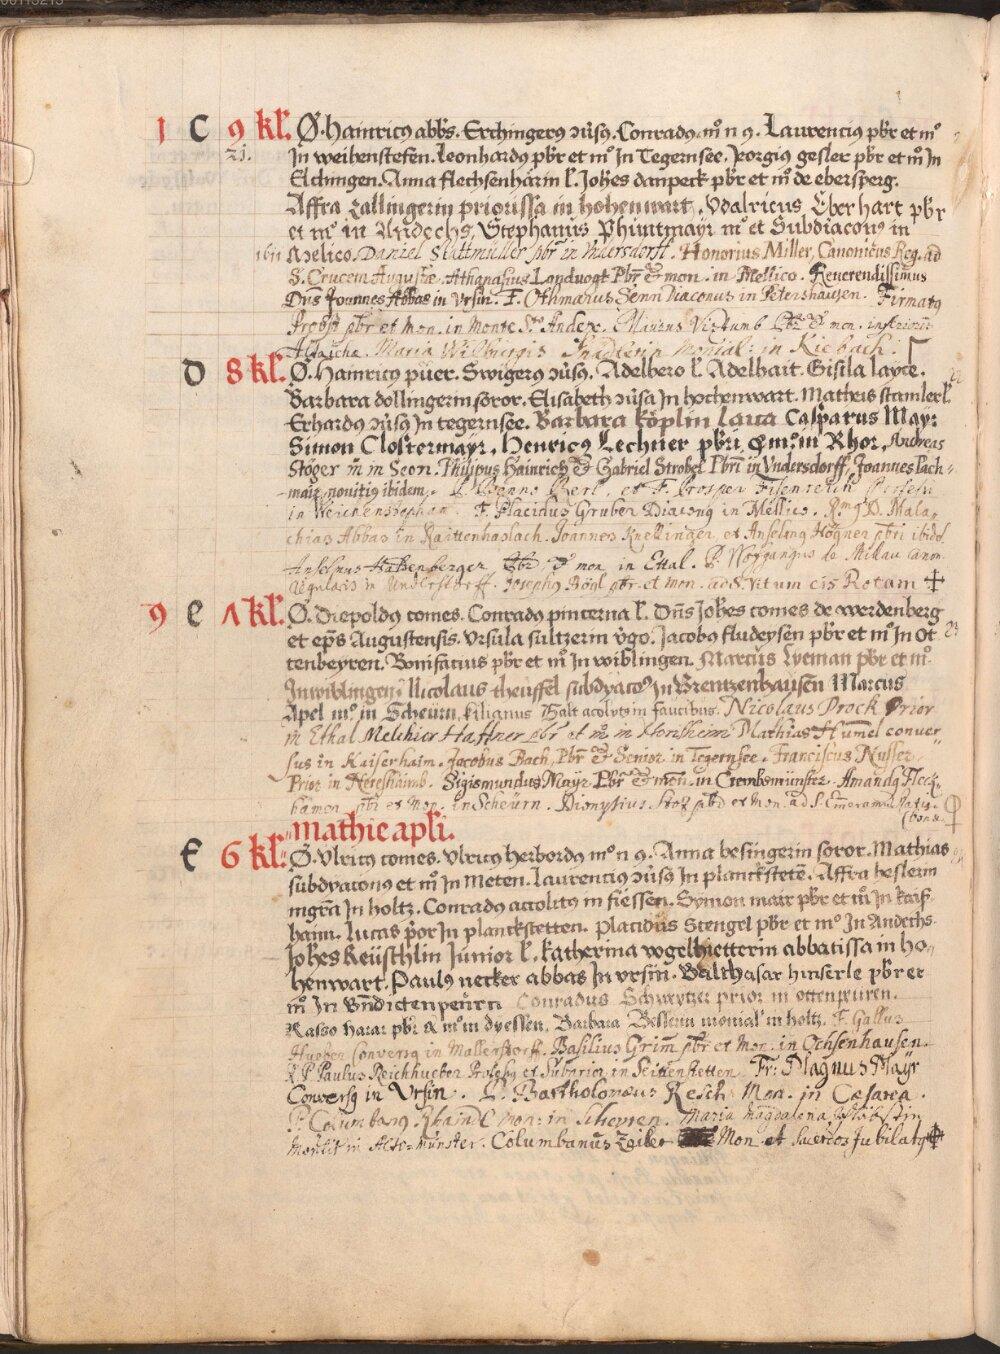 1 C 9 kl'. Ø. Hainricus abbs. Erchingerus 2us9. Conradus m° n 9. Laurencius pbr et m°
21. In weihenstefen. Leonhardus pbr et m° In Tegernsee. Jeorgius gesler pbr et m° In
Elchingen. Anna flechsenhärin l'. Johes danpeck pbr et m° de ebersperg.
Affra zallingerin priorissa in hohenwart. Vdalricus Eberhart pbr
et m° in Andechs, Stephanus Phuntmayr m° et Subdiaconus in
Melico. Daniel pbr in Undersdorff. Honorius Miller, Canonicus Reg. ad
S. Crucem Augustæ. Athanasius Landvogt Pbr & mon. in Mellico. Reverendissimus
Dns Joannes Abbas in Vrsin. F. Othmarus Senn Diaconus in Petershausen. Firmatus
Probst pbr et mon. in Monte Sto Andex. Marinus Viztumb Pbr & mon. in
Altaicha. Maria Wilburgis monial: in Kiebach.
D 8 kl'. Ø. Hainricus puer. Swigerus 2us9. Adelbero l'. Adelhait. Gisila layce.
Barbara dollingerin soror. Elisabeth 2usa In hochenwart. Matheis stamler l'.
Erhardus 2us9 In tegernsee. Barbara köplin Laica Casparus Mayr
Simon Clostermayr, Henricus Lechner pbri & m° in Rhor, Andreas
Stöger m in Seon. Philippus Hainrich & Gabriel Strobel Pbri in Vndersdorff, Joannes Pach-
mair nouitius ibidem. P. Benno Kerl, et F. Prosper Eisenreich Professi
in Weichenstephan. F. Placidus Gruber Diaconus in Mellico. Rmus D. Mala-
chias Abbas in Raittenhaslach. Joannes Knellinger, et Anselmus Högner pbri ibid.
Anselmus Hatzenberger, Pbr & mon. in Ettal. P. Wolfgangus de Millau Canon.
regularis in Understorff. Josephus Bögl pbr. et mon. ad S. Vitum cis Rotam ✢
9 E 7 kl'. Ø. Diepoldus comes. Conradus pincerna l'. Dns Johes comes de werdenberg
et eps Augustensis. Vrsula sultzerin vgo. Jacobus fludeysen pbr et m° In Ot 23
tenbeyren. Bonifatius pbr et m° In wiblingen. Marcus Lyeman pbr et m°
In wiblingen. Nicolaus theuffel subdyacon9 In Brentzenhausen Marcus
Apel m° in Scheurn, kilianus Halt acolytus in faucibus. Nicolaus Prock Prior
in Ethal Melchior Haffner pbr et m in Monsheim Mathias Hummel conver
sus in Kaiserhaim. Jacobus Bach, Pbr & Senior in Tegernsee. Franciscus Nusser
Prior in Neresshaimb. Sigismundus Mayr Pbr & mon. in Crembsmünster. Amandus Fleck
hamer pbr et Mon. in Scheurn. Dionysius Stoz pbr et mon. ad S. Emeramum Ratis-
(bonæ.
Mathie apli.
F 6 kl'. Ø. Vlricus comes. Vlricus herbordus m° n 9. Anna besingerin soror. Mathias
subdyaconus et m° In Meten. Laurencius 2us9 In planckstetē. Affra heslerin
mgra In holtz. Conradus accolitus in fiessen. Symon mair pbr et m° In kais-
haim. Lucas pior In planckstetten. Placidus Stengel pbr et m° In Andechs.
Johes Keüschlin Junior l'. katherina vogelhietterin abbatissa in ho-
henwart. Paulus necker abbas In vrsin. Balthasar hinserle pbr et
m° In bndictenpeürn Conradus Schweytzer prior in ottenpeuren.
Rasso harar pbr & m° in dyessen. Barbara Besserin monial' in holtz. F. Gallus
Hueber Conversus in Mallerstorff. Basilius Grim pbr et Mon. in Ochsenhausen.
R P Paulus Reichhueber Profess9 et Subprior in Seittenstetten. Fr: Magnus Mayr
Conversus in Vrsin. P. Bartholomæus Resch Mon. in Cæsarea.
P. Columbanus Rhaindl mon: in Scheyren. Maria Magdalena
Monialis in Alto-Münster. Columbanus Zeiler Mon et Sacerdos Jubilatus ✢